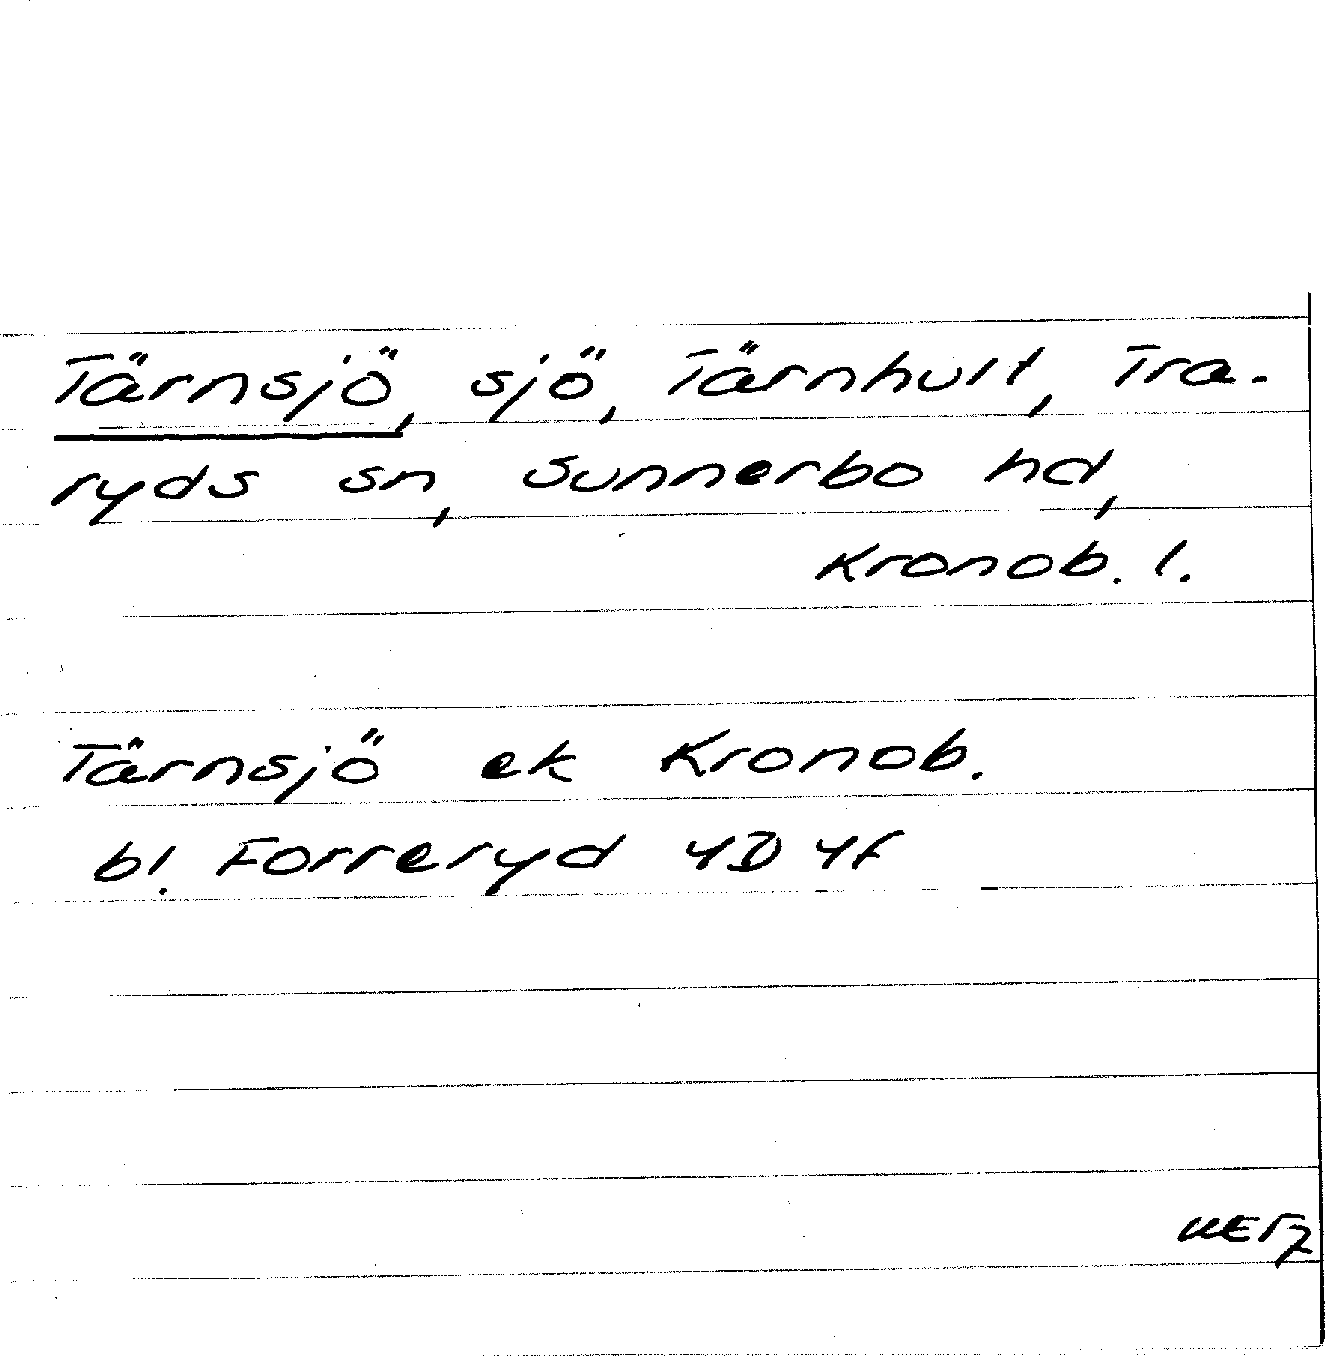 Tärnsjö, sjö, Tärnhult, Tra-
ryds sn, Sunnerbo hd,
Kronob. l.
Tärnsjö ek Kronob.
bl. Forreryd 4D 4f